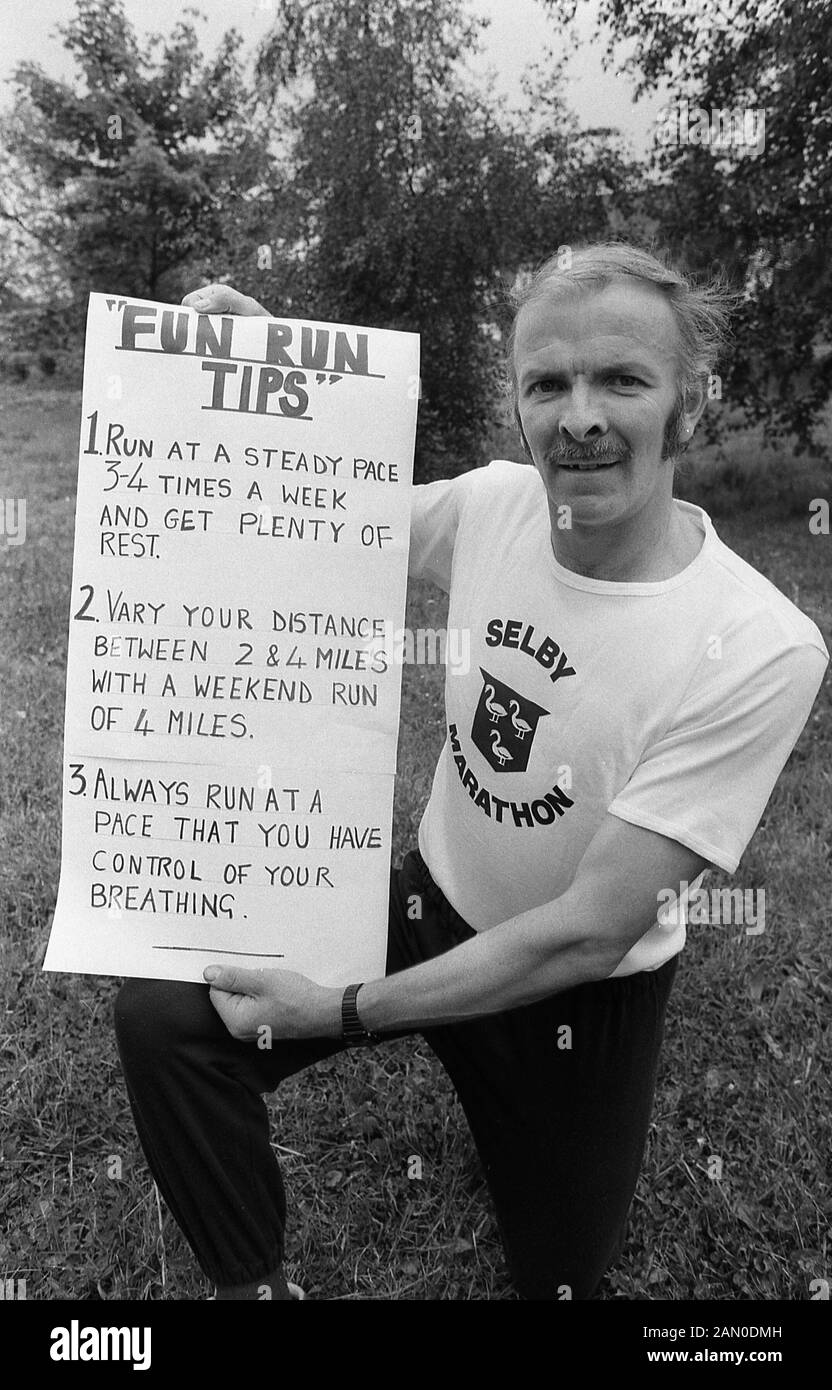 "FUN RUN
TIPS"
1. RUN AT A STEADY PACE
3-4 TIMES A WEEK
AND GET PLENTY OF
REST.
2. VARY YOUR DISTANCE
BETWEEN 2 & 4 MILES
WITH A WEEKEND RUN
OF 4 MILES.
3. ALWAYS RUN AT A
PACE THAT YOU HAVE
CONTROL OF YOUR
BREATHING.
SELBY
MARATHON
alamy
Image ID: 2AN0DMH
www.alamy.com